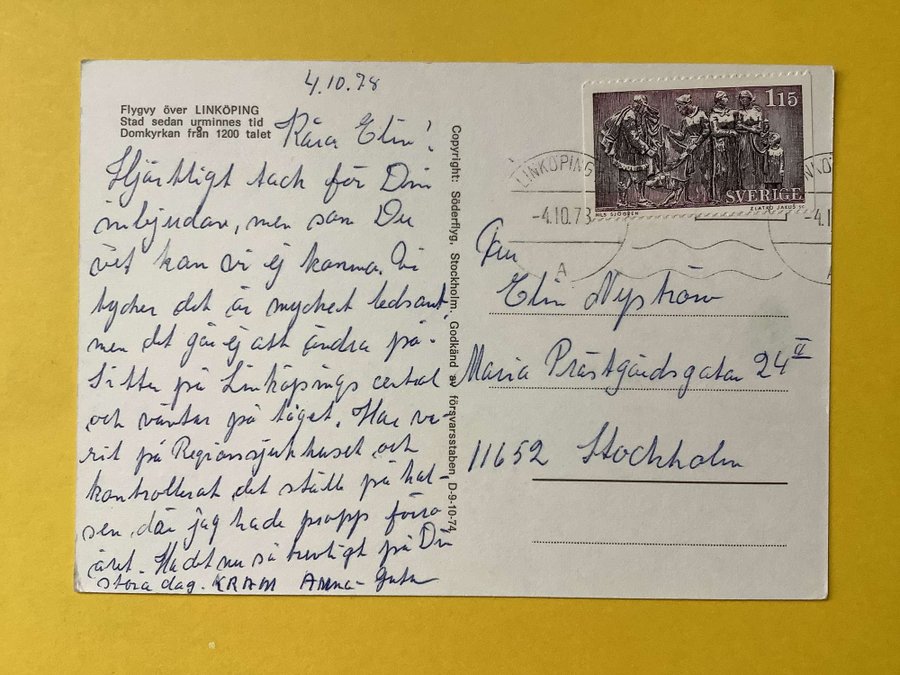 4.10.78
Flygvy över LINKÖPING
Stad sedan urminnes tid
Domkyrkan från 1200 talet
Kära Elin!
Hjärtligt tack för Din
inbjudan, men som Du
vet kan vi ej komma. Vi
tycker det är mycket ledsamt,
men det går ej att ändra på.
Sitter på Linköpings central
och väntar på tåget. Har va-
rit på Regionsjukhuset och
kontrollerat det ställe på hal-
sen, där jag hade propp förra
året. Ha det nu så trevligt på Din
stora dag. KRAM Anna-
Copyright: Söderflyg, Stockholm. Godkänd av försvarsstaben D-9-10-74
1.15
SVERIGE
NILS SJÖGREN
ZLATKO JAKUS SC
LINKÖPING
-4.10.78
A
NKÖ
-4.1
Fru
Elin Nyström
Maria Prästgårdsgatan 24 IV
11652 Stockholm